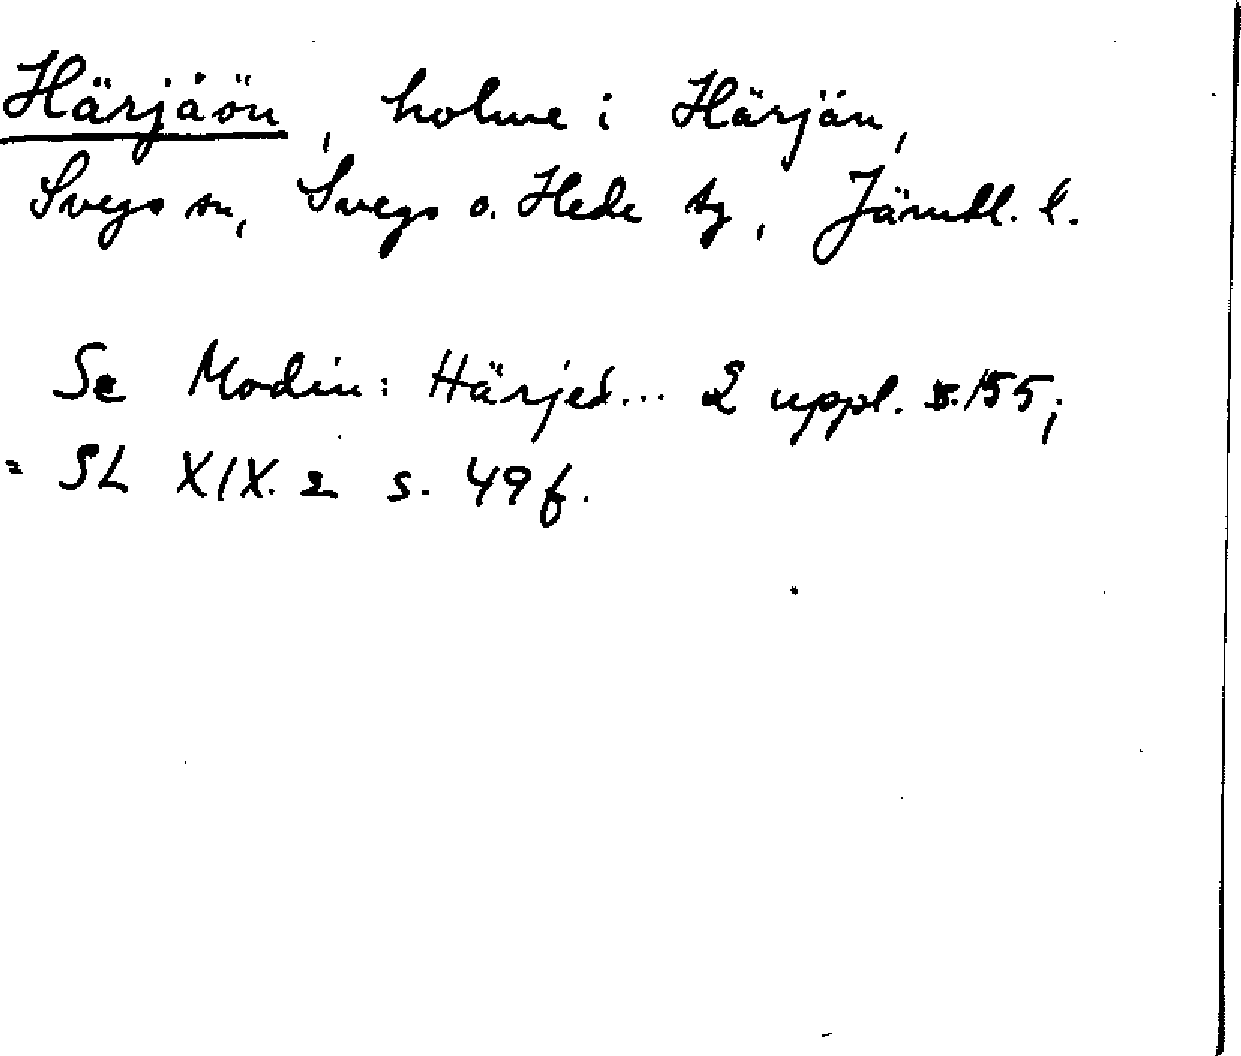 Härjåön, holme i Härjån,
Svegs sn, Svegs o. Hede tg, Jämtl. l.
Se Modin: Härjed... 2 uppl. s. 155;
= SL XIX. 2 s. 49 f.